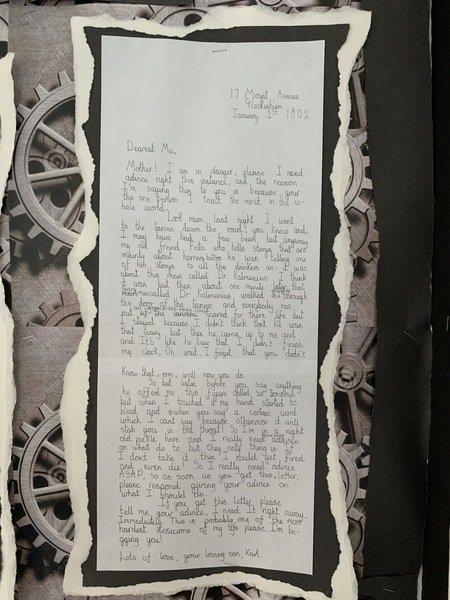 17 Mount Avenue
Glockenheim
January 1st 1802
Dearest Ma,
Mother! I am in danger, please I need
advice right this instance, and the reason
I'm saying this to you is because your
the one person I trust the most in the w-
hole world.
Look mum, last night I went
to the tavern down the road, you know and
I may have had a few beers but anyway
my old friend Fritz who tells stories that are
mainly about horrors, so he was telling one
of his storys to all the drinkers and it was
about this man called Dr Kalmenius I think
it was but then about one minute later that
man called Dr Kalmenius, walked in through
the door of the tavern and everybody ran
out of the tavern scared for there life but
I stayed because I didn't think that he was
that scary, but then he came up to me and
and It's like he knew that I didn't finish
my clock, Oh wait, I forgot that you didn't
Know that, erm, well now you do.
So but listen before you say anything
he offered me this figure called sir Ironsoul
but when I touched it my hand started to
bleed and when you say a certain word
which I cant say because otherwise it will
stab you in the throat! So I'm in a right
old pickle here and I really need advice
on what do to but they only thing is if
I dont take it then I could get fired
and even die! So I really need advice
ASAP, so as soon as you get this letter,
please respond giving your advice on
what I should do.
If you get this letter please
tell me your advice, I need It right away,
Immediately. This is probably one of the most
hardest descions of my life please I'm be-
gging you!
Lots of love, your loving son, Karl.